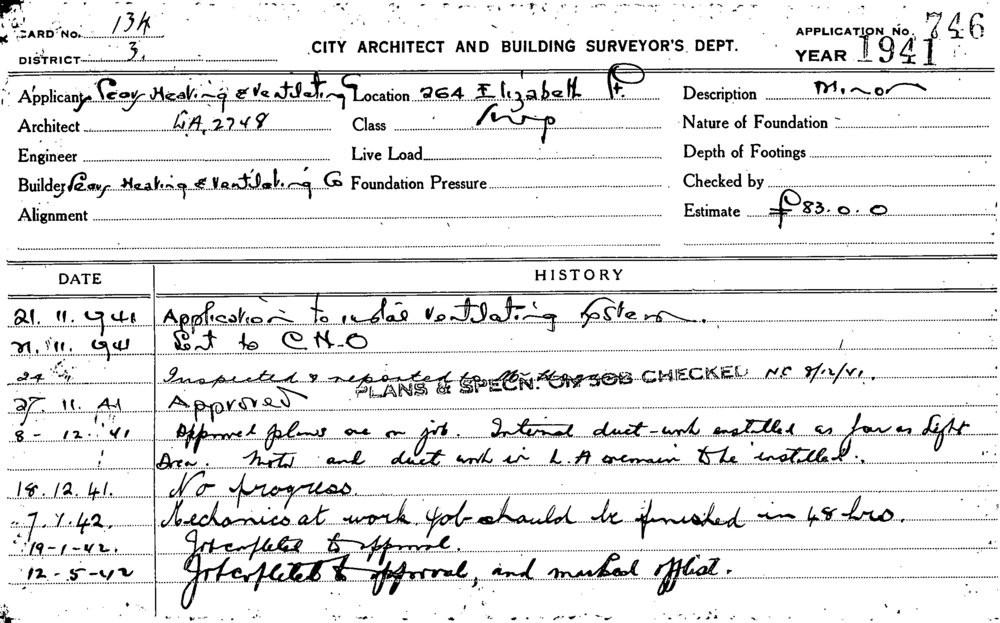 CARD No. 134
DISTRICT 3.
CITY ARCHITECT AND BUILDING SURVEYOR'S DEPT.
APPLICATION No. 746
YEAR 1941
Applicant Heating & Ventilating Co Location 264 Elizabeth St. Description Minor
Architect LA.2748 Class Nature of Foundation
Engineer Live Load Depth of Footings
Builder Heating & Ventilating Co Foundation Pressure Checked by
Alignment Estimate £83.0.0
DATE HISTORY
21. 11. 1941 Application to install Ventilating System.
21. 11. 1941 Sent to C.H.O
24 " Inspected & reported to
PLANS & SPECN. ON JOB CHECKED NC 8/12/41.
27. 11. 41 Approved
8 - 12. 41 Approved plans are on job. Internal duct-work installed as far as light
Area. Motor and duct work in L.A remain to be installed.
18. 12. 41. No progress.
7. 1. 42. Mechanics at work job should be finished in 48 hrs.
19-1-42. Job completed to approval.
12-5-42 Job completed to approval, and marked off list.